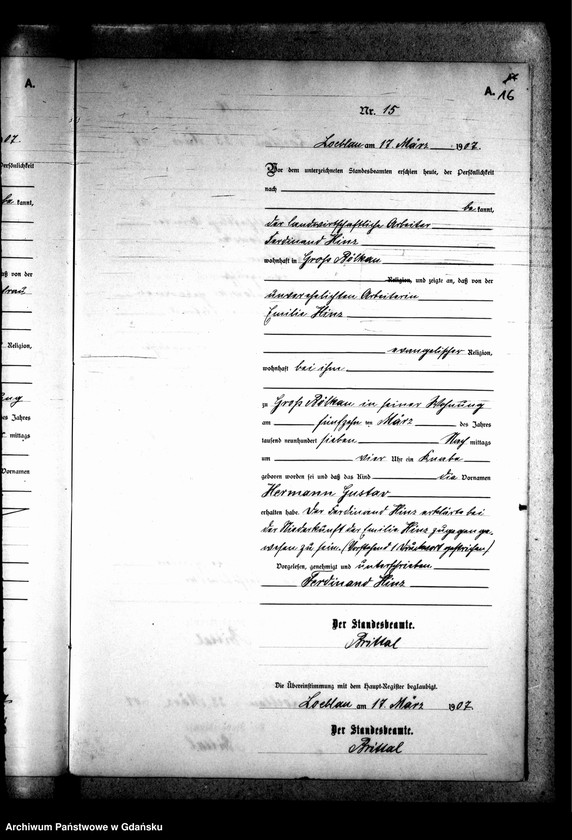 A.
07
Persönlichkeit
be kannt,
daß von der
frau
Religion,
des Jahres
mittags
Vornamen
A. 16
Nr. 15
Loeblau am 17. März 1907.
Vor dem unterzeichneten Standesbeamten erschien heute, der Persönlichkeit
nach
be kannt,
der landwirtschaftliche Arbeiter
Ferdinand Hinz
wohnhaft in Groß Bölkau
Religion, und zeigte an, daß von der
unverehelichten Arbeiterin
Emilie Hinz
evangelischer Religion,
wohnhaft bei ihm
zu Groß Bölkau in seiner Wohnung
am fünfzehn ten März des Jahres
tausend neunhundert sieben Nach mittags
um vier Uhr ein Knabe
geboren worden sei und daß das Kind die Vornamen
Hermann Gustav
erhalten habe. Der Ferdinand Hinz erklärte bei
der Niederkunft der Emilie Hinz zugegen ge-
wesen zu sein. (Vorstehend 1 Druckwort gestrichen)
Vorgelesen, genehmigt und unterschrieben
Ferdinand Hinz
Der Standesbeamte.
Brittal
Die Übereinstimmung mit dem Haupt-Register beglaubigt.
Loeblau am 17. März 1907.
Der Standesbeamte.
Brittal
Archiwum Państwowe w Gdańsku